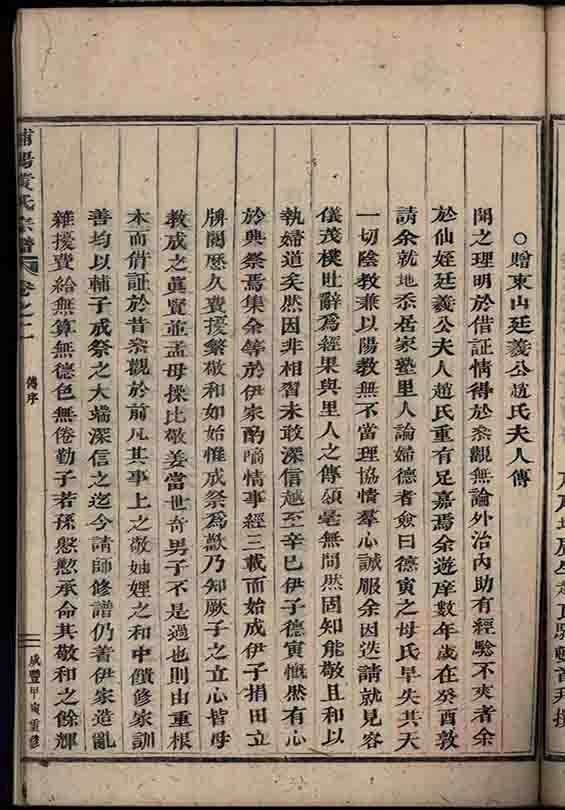 ○贈東山廷義公趙氏夫人傳
聞之理明於借証情得於叅觀無論外治內助有經驗不爽者余
於仙姪廷義公夫人趙氏重有足嘉焉余遊庠數年歲在癸酉敦
請余就地忝居家塾里人論婦德者僉曰德寅之母氏早失其天
一切陰教兼以陽教無不當理協情羣心誠服余因迭請就見容
儀茂樸吐辭爲經果與里人之傳頌毫無間然固知能敬且和以
執婦道矣然因非相習未敢深信越至辛巳伊子德寅慨然有心
於興祭焉集余等於伊家酌商情事經三載而始成伊子捐田立
牌閱歷久費擾繁敬和如始惟成祭爲歡乃知厥子之立心皆母
教成之眞賢並孟母操比敬姜當世奇男子不是過也則由重根
本而借証於昔叅觀於前凡其事上之敬妯娌之和中饋修家訓
善均以輔子成祭之大端深信之迄今請師修譜仍著伊家造亂
雜擾費給無算無德色無倦勤子若孫慇懃承命其敬和之餘輝
浦陽黃氏宗譜 卷之二 傳序
咸豐甲寅重修